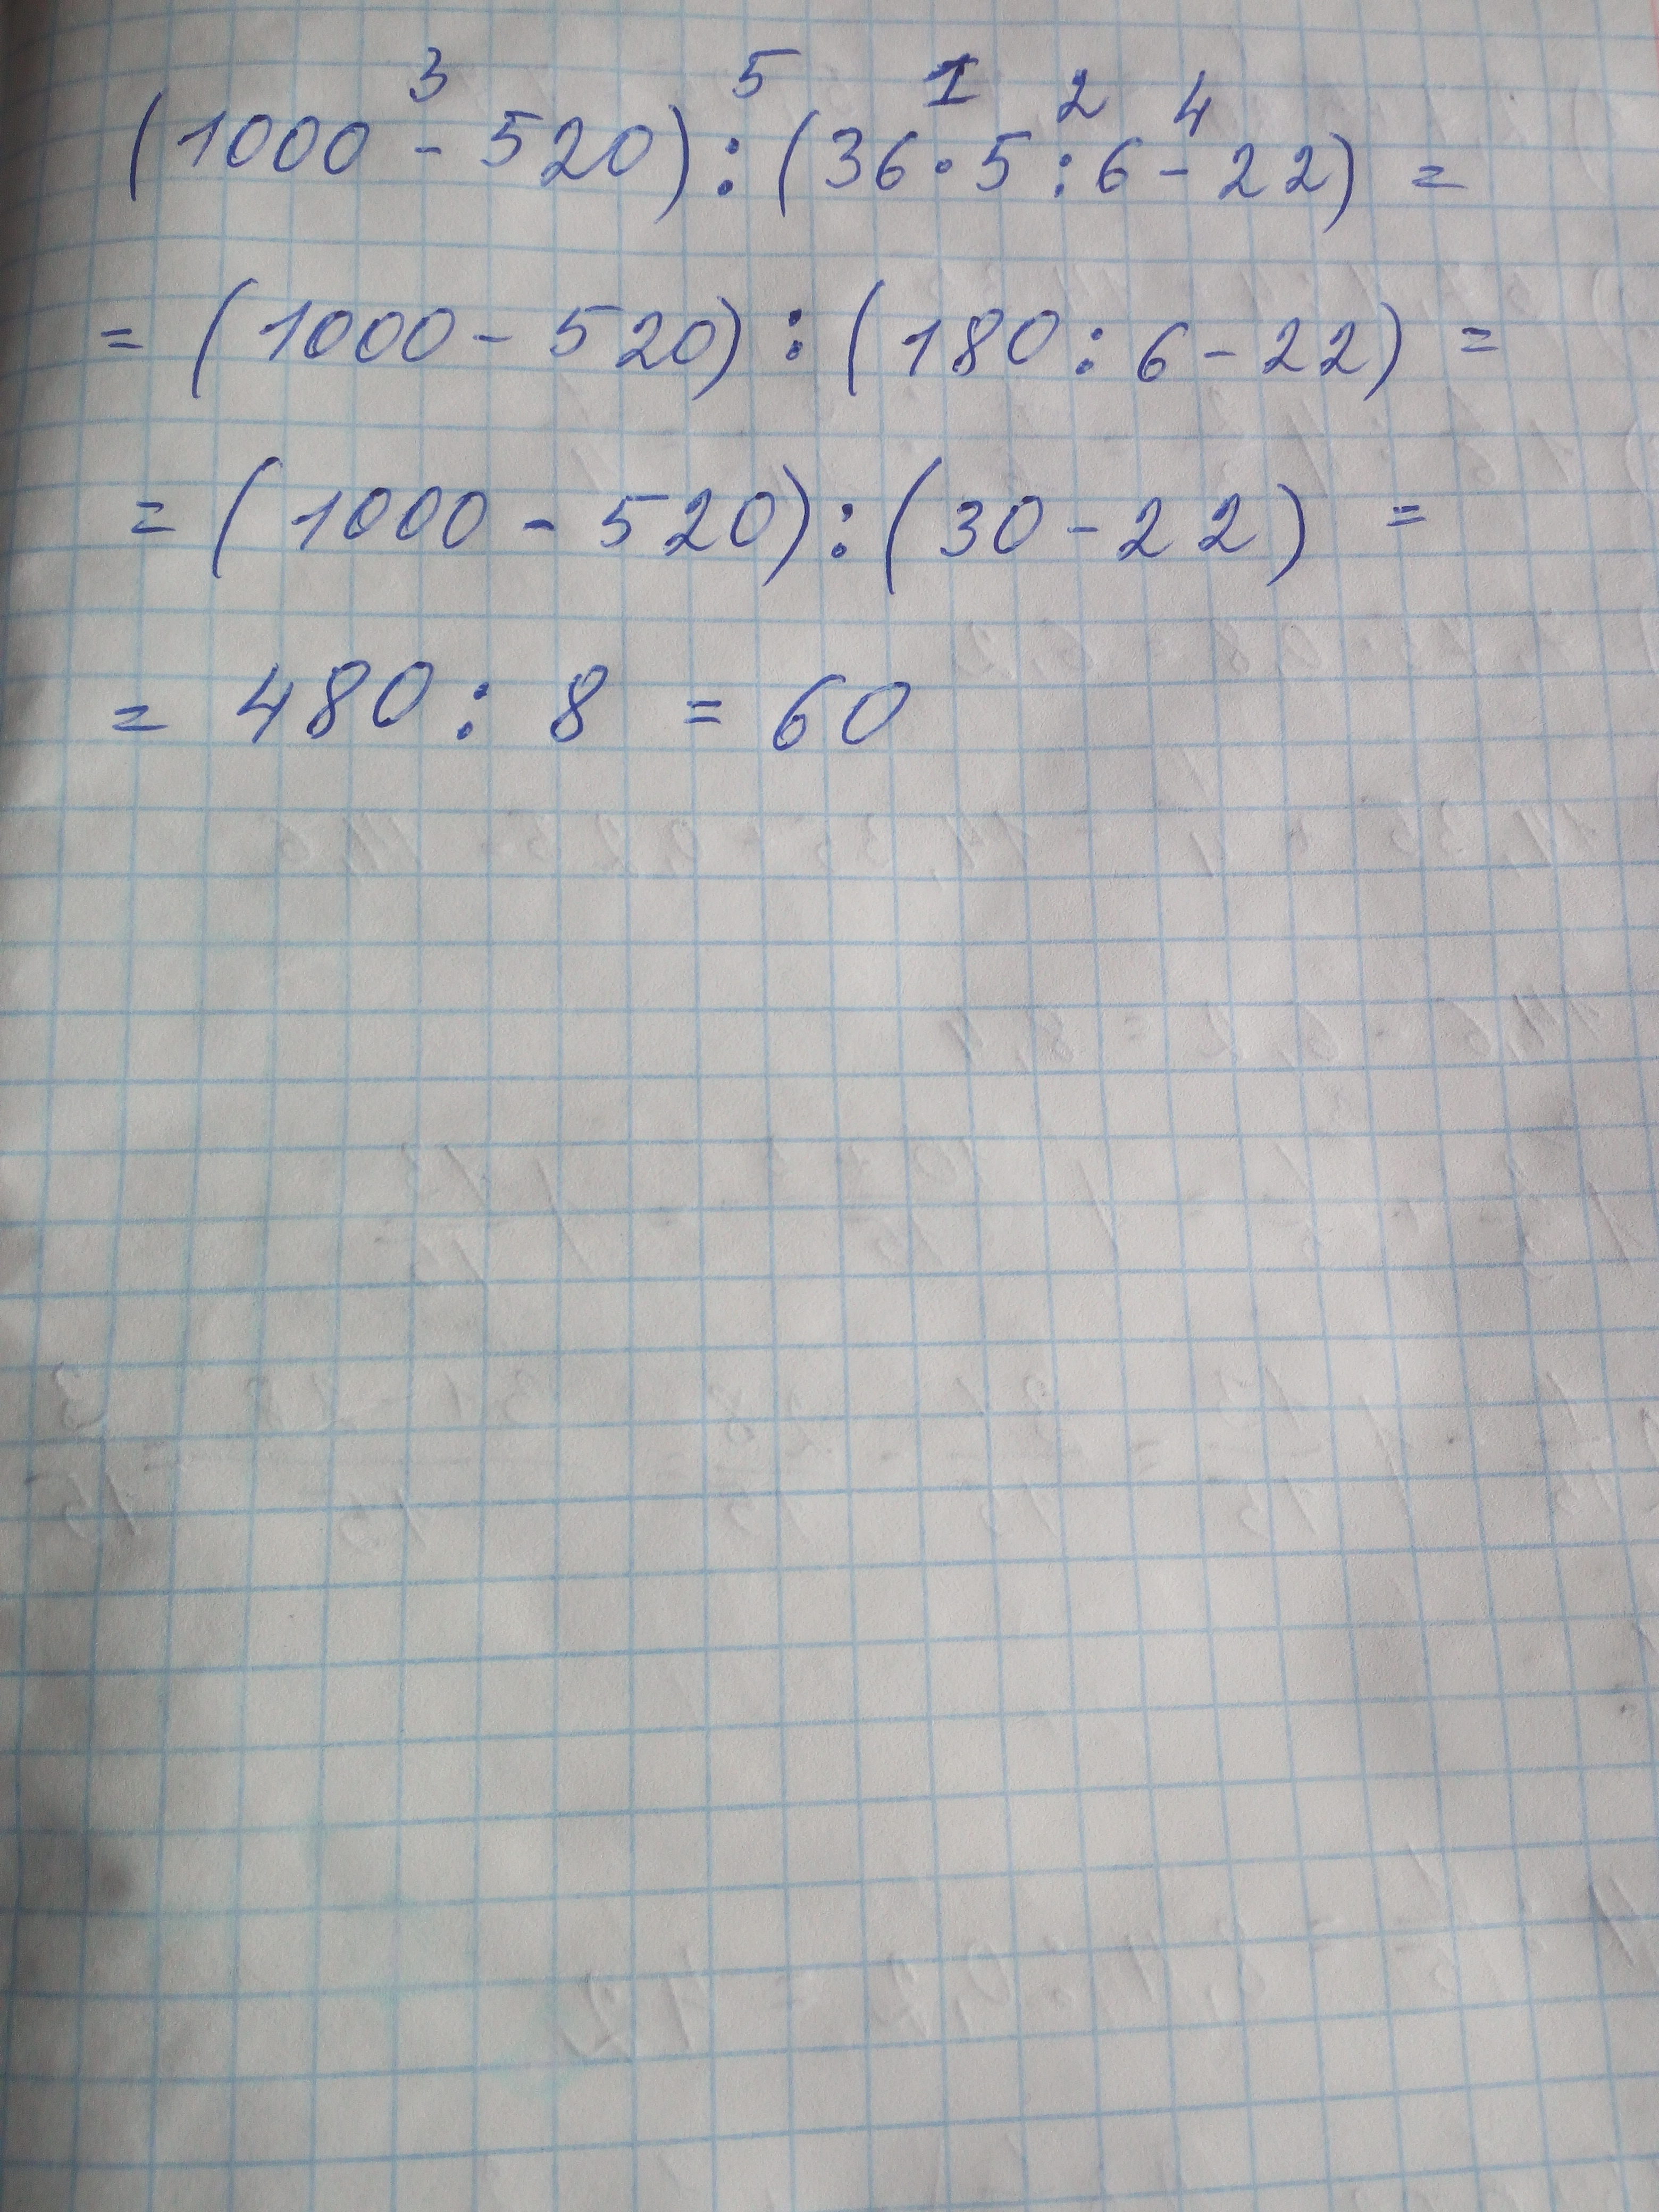 3 5 1 2 4
(1000 - 520) : (36 · 5 : 6 - 22) =
= (1000 - 520) : (180 : 6 - 22) =
= (1000 - 520) : (30 - 22) =
= 480 : 8 = 60